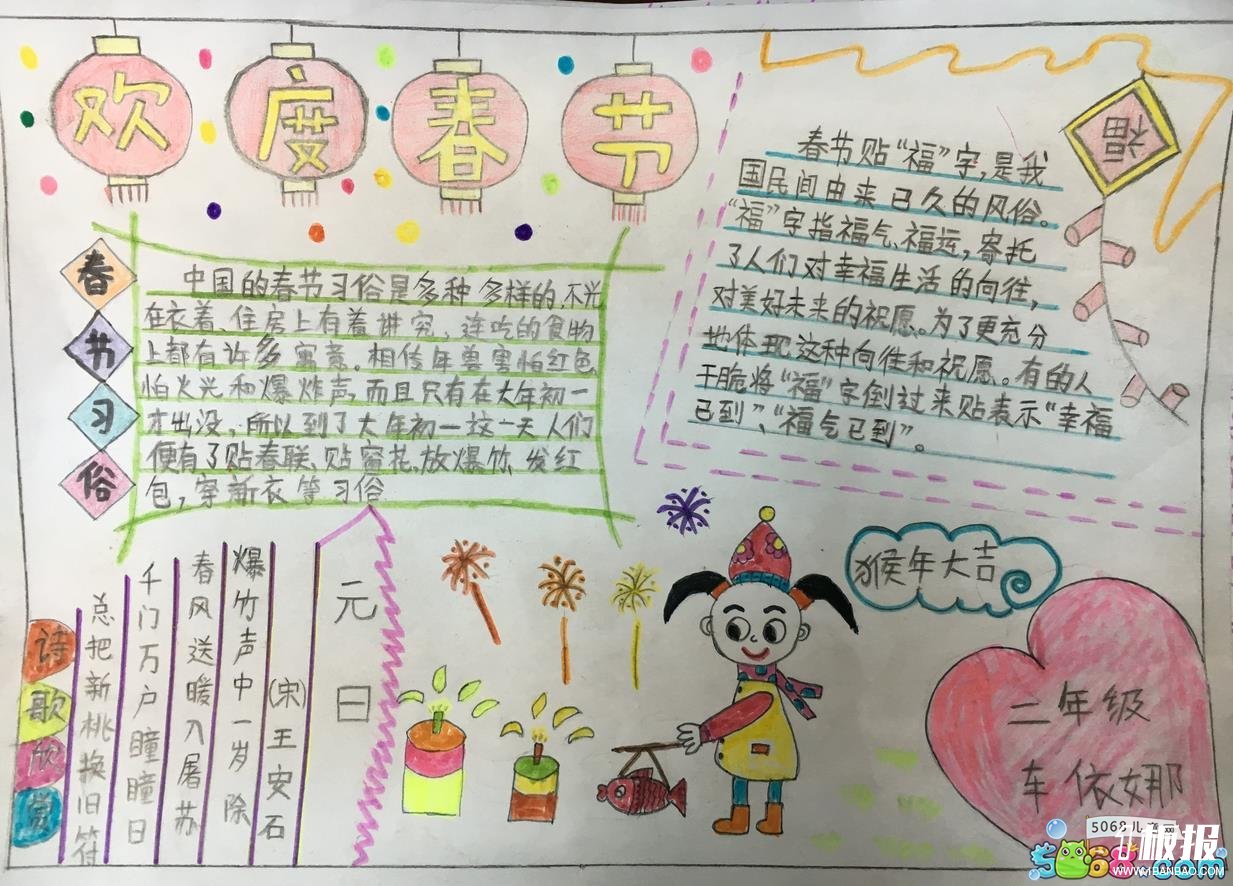 欢度春节
春节习俗
中国的春节习俗是多种多样的,不光
在衣着、住房上有着讲究、连吃的食物
上都有许多寓意。相传年兽害怕红色
怕火光和爆炸声,而且只有在大年初一
才出没,所以到了大年初一这一天人们
便有了贴春联、贴窗花、放爆竹、发红
包,穿新衣等习俗
福
春节贴“福”字,是我
国民间由来已久的风俗。
“福”字指福气、福运,寄托
了人们对幸福生活的向往,
对美好未来的祝愿。为了更充分
地体现这种向往和祝愿。有的人
干脆将“福”字倒过来贴表示“幸福
已到”、“福气已到”。
诗歌欣赏
元日
(宋)王安石
爆竹声中一岁除
春风送暖入屠苏
千门万户瞳瞳日
总把新桃换旧符
猴年大吉
二年级
车依娜
5068儿童网
5068.com
板报
WWW.41BANBAO.COM